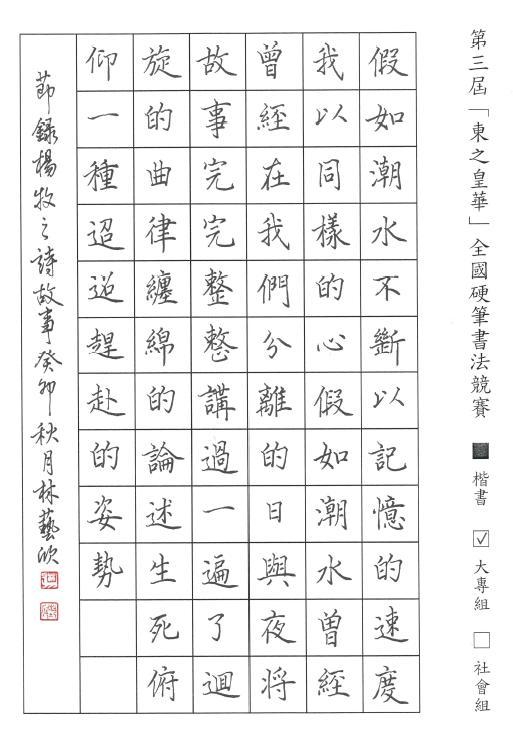 第三屆「東之皇華」全國硬筆書法競賽 ■ 楷書 ☑ 大專組 □ 社會組
假如潮水不斷以記憶的速度
我以同樣的心假如潮水曾經
曾經在我們分離的日與夜將
故事完完整整講過一遍了迴
旋的曲律纏綿的論述生死俯
仰一種迢遞趕赴的姿勢
節錄楊牧之詩故事癸卯秋月林藝欣